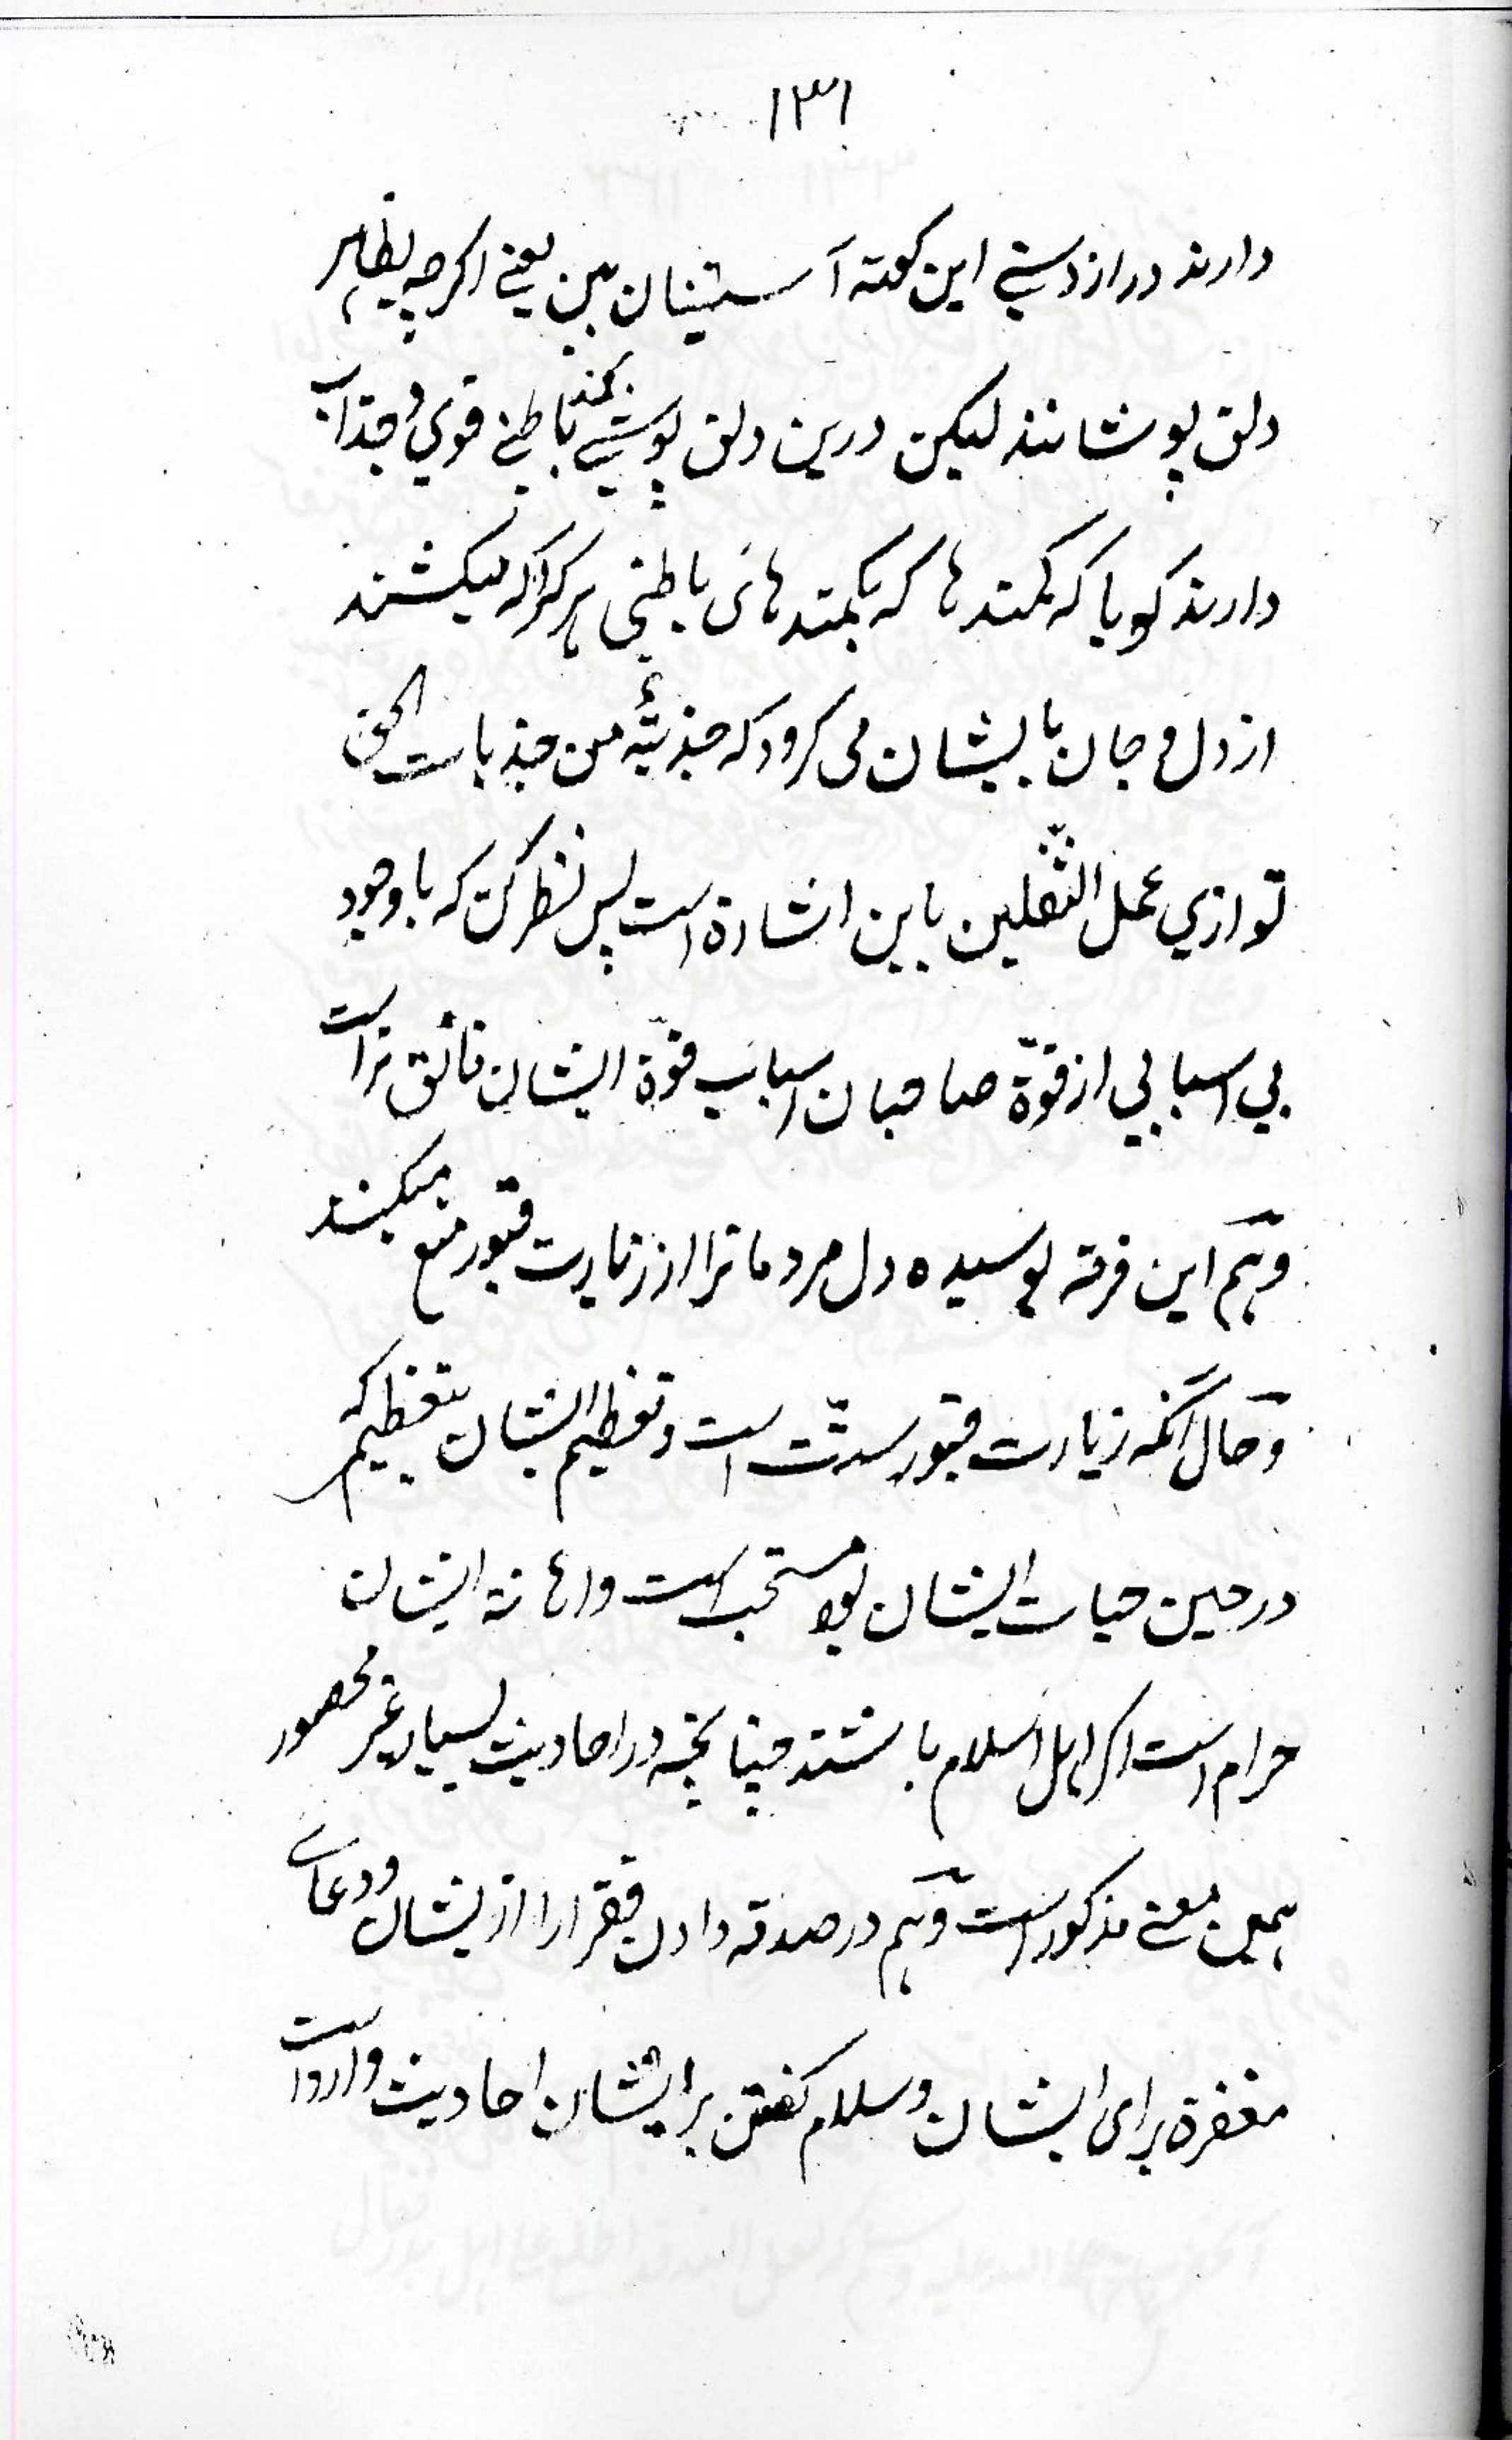 ۱۳۱
دارند دراز دستے این کوته آستینان بین یعنے اکرچه بظاهر
دلق پوشانند لیکن درین دلق پوشے کمند باطنے قوي و جذاب
دارند کویا که کمندها که بکمندهای باطنی هر کرا که میکشند
از دل و جان بایشان می کرود که جذبةٌ من جذبات الحق
توازي عمل الثّقلین باین اشارة است پس نظر کن که با وجود
بي اسبابي از قوّة صاحبان اسباب قوّة ایشان فائق تر است
وهم این فرقه پوسیده دل مردمانرا از زیارت قبور منع میکنند
وحال آنکه زیارت قبور سنّت است و تعظیم ایشان بتعظیم که
در حین حیات ایشان بود مستحب است واهانة ایشان
حرام است اکر اهل اسلام باشند چنانچه در احادیث بسیار غیر محصور
همین معنے مذکور است وهم در صدقه دادن فقرا را از ایشان و دعاے
مغفرة برای ایشان و سلام کفتن بر ایشان احادیث وارد است